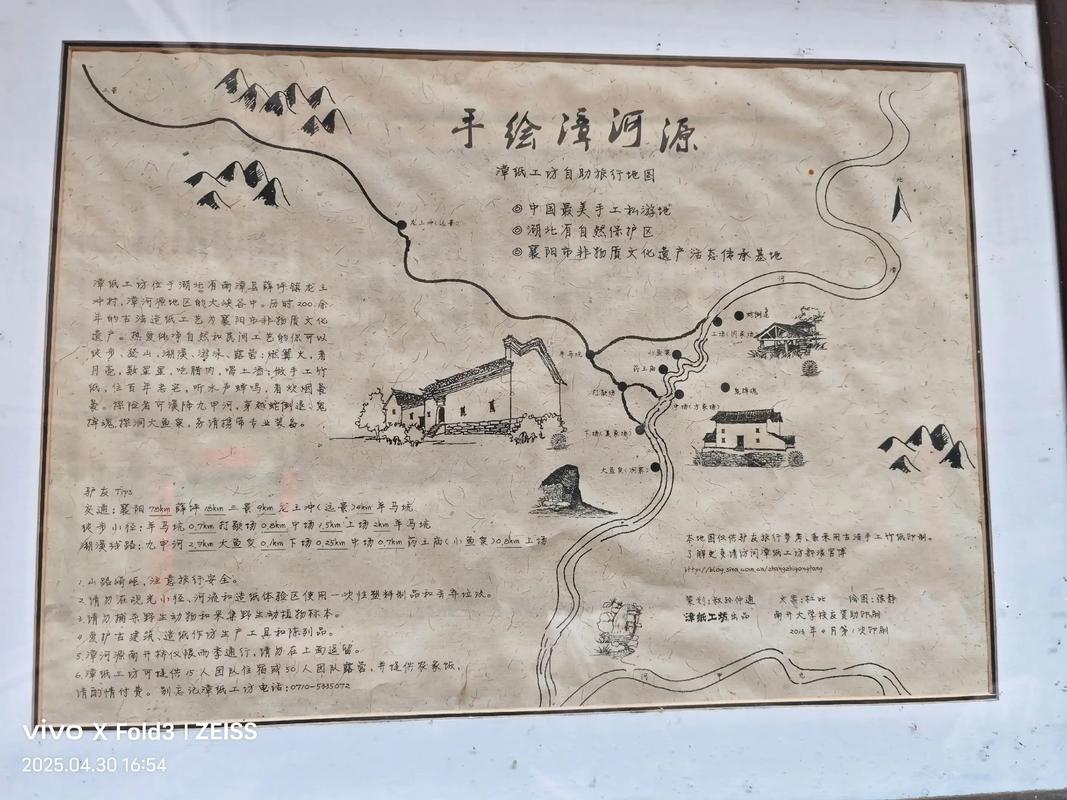 手绘漳河源
漳纸工坊自助旅行地图
◎中国最美手工私游地
◎湖北省自然保护区
◎襄阳市非物质文化遗产活态传承基地
三景
龙王冲(远景)
北
漳
河
漳纸工坊位于湖北省南漳县薛坪镇龙王
冲村,漳河源地区的大峡谷中。历时200余
年的古法造纸工艺为襄阳市非物质文化
遗产。热爱纯净自然和民间工艺的你可以
徒步、登山、溯溪、游泳、露营;燃篝火,看
月亮,数星星,吃腊肉,喝土酒;做手工竹
纸,住百年老宅,听水声蝉鸣,看炊烟袅
袅。探险者可溪降九甲河,穿越蛇倒退、鬼
摔魂,探洞大鱼泉,务请携带专业装备。
羊马坑
小鱼泉
药王庙
打歇场
蛇倒退
上场(闵家场)
鬼摔魂
中场(方家场)
下场
大鱼泉(洞寨)
驴友Tips
交通:襄阳78km薛坪18km三景9km龙王冲(远景)4km羊马坑
徒步小径:羊马坑0.7km打歇场0.8km中场1.5km上场2km羊马坑
溯溪线路:九甲河2.9km大鱼泉0.1km下场0.25km中场0.7km药王庙(小鱼泉)0.8km上场
1.山路崎岖,注意旅行安全。
2.请勿在观光小径、河流和造纸体验区使用一次性塑料制品和丢弃垃圾。
3.请勿捕杀野生动物和采集野生动植物标本。
4.爱护古建筑、造纸作坊生产工具和陈列品。
5.漳河源南开桥仅限两季通行,请勿在上面逗留。
6.漳纸工坊可提供15人团队住宿或50人团队露营,并提供农家饭,
请酌情付费。别忘记漳纸工坊电话:0710-5335072
本地图仅供驴友旅行参考,亦采用古法手工竹纸印制。
了解更多请访问漳纸工坊新浪官博
http://blog.sina.com.cn/zhangzhigongfang
策划:敖孙仲通 文案:杜北 绘图:张静
漳纸工坊出品 南开大学校友资助印刷
2013年4月第1次印刷
河
甲
九
vivo X Fold3 | ZEISS
2025.04.30 16:54